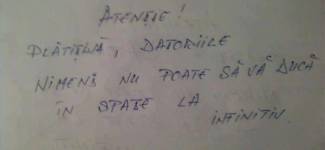 ATENȚIE!
PLĂTIȚIVĂ, DATORIILE
NIMENI NU POATE SĂ VĂ DUCĂ
ÎN SPATE LA
INFINITIV.